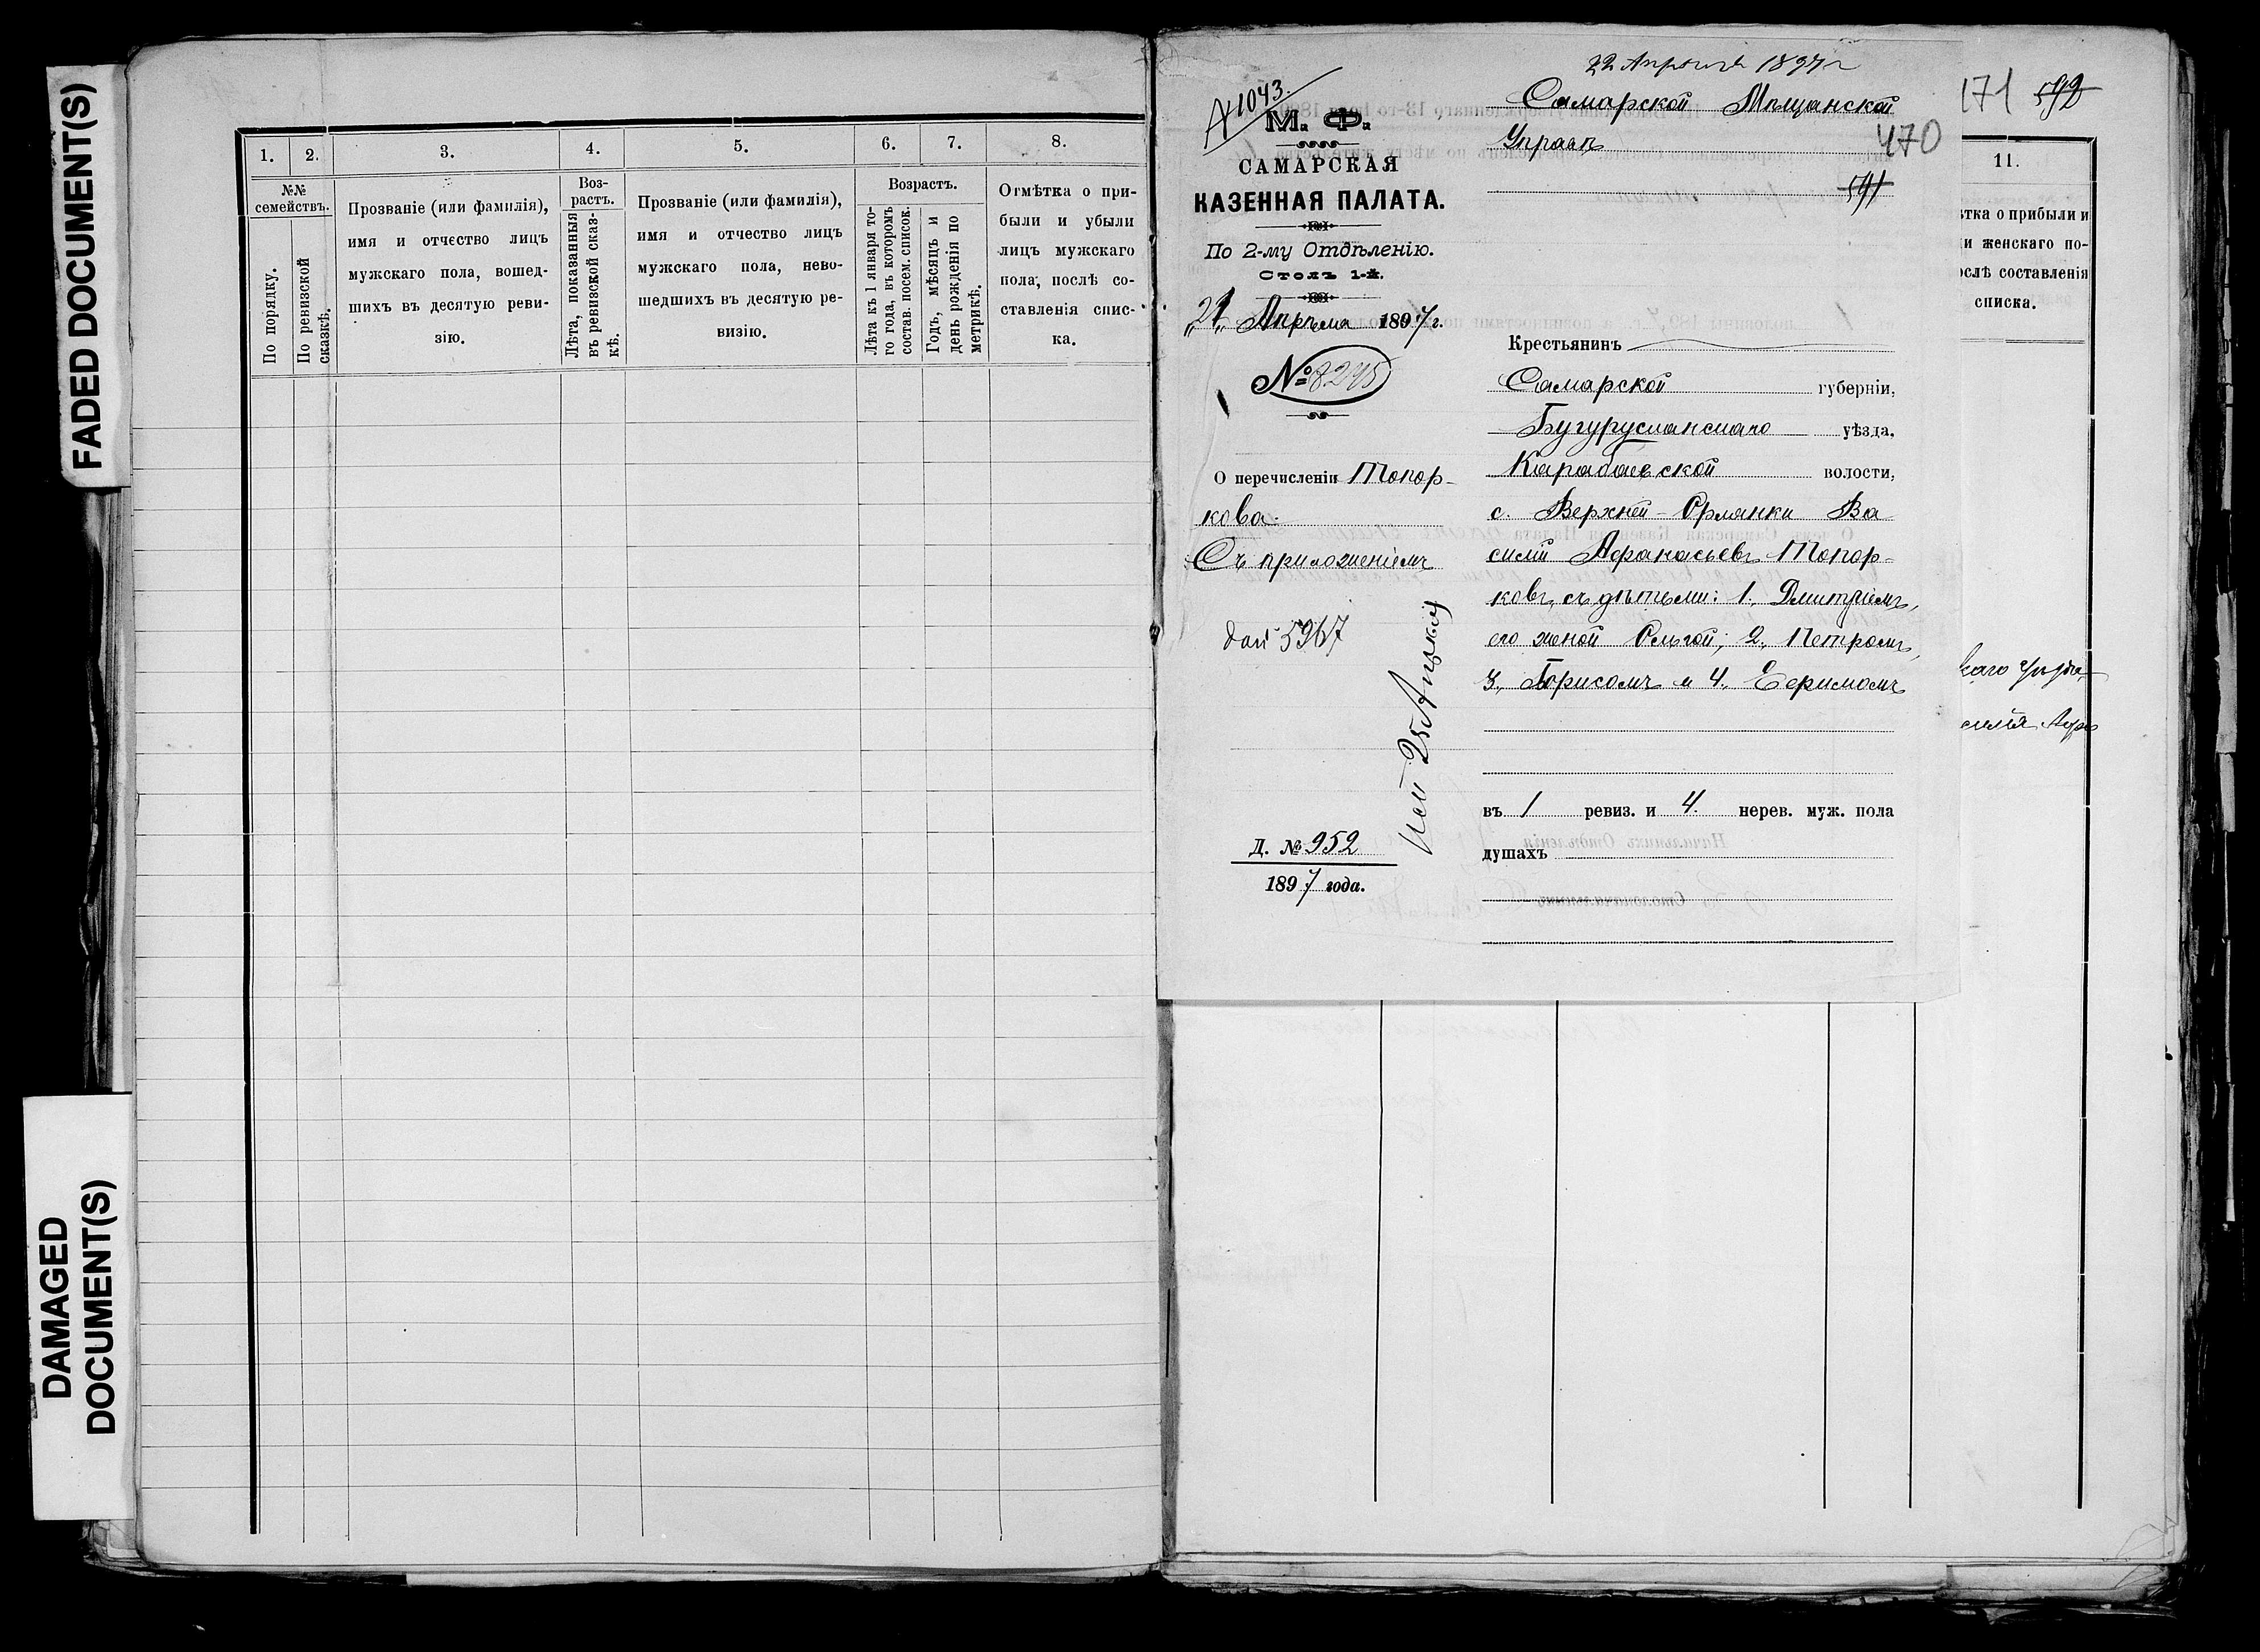 FADED DOCUMENT(S)
DAMAGED
DOCUMENT(S)
1.
2.
3.
4.
5.
6.
7.
8.
№№
семействъ.
По порядку.
По ревизской
сказкѣ.
Прозваніе (или фамилія),
имя и отчество лицъ
мужскаго пола, вошед-
шихъ въ десятую реви-
зію.
Воз-
растъ.
Лѣта, показанныя
въ ревизской сказ-
кѣ.
Прозваніе (или фамилія),
имя и отчество лицъ
мужскаго пола, нево-
шедшихъ въ десятую ре-
визію.
Возрастъ.
Лѣта къ 1 января то-
го года, въ которомъ
состав. посем. список.
Годъ, мѣсяцъ и
день рожденія по
метрикѣ.
Отмѣтка о при-
были и убыли
лицъ мужскаго
пола, послѣ со-
ставленія спис-
ка.
№1043.
М. Ф.
САМАРСКАЯ
КАЗЕННАЯ ПАЛАТА.
По 2-му Отдѣленію.
Столъ 1-й.
„21„ Апрѣля 1897 г.
№ 8245
О перечисленіи Топор-
кова.
Съ приложеніемъ
5967
Д. № 952
1897 года.
22 Апрѣля 1897 г
Самарской Мѣщанской
Управѣ
470
591
Крестьянинъ
Самарской губерніи,
Бугурусланскаго уѣзда,
Карабаевской волости,
с. Верхней-Орлянки Ва
силій Афанасьевъ Топор-
ковъ, съ дѣтьми: 1., Дмитріемъ,
его женой Ольгой; 2., Петромъ,
3., Борисомъ и 4., Ефимомъ
въ 1 ревиз. и 4. нерев. муж. пола
душахъ
171
592
11.
тка о прибыли и
и женскаго по-
ослѣ составленія
списка.
каго
силія Афа